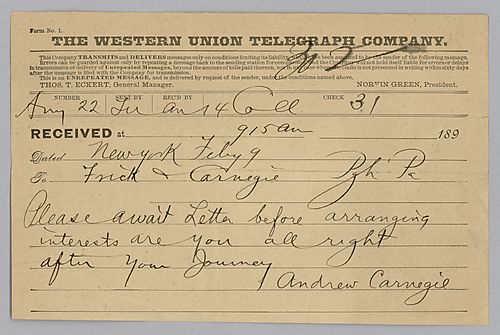 Form No. 1.
THE WESTERN UNION TELEGRAPH COMPANY.
This Company TRANSMITS and DELIVERS messages only on conditions limiting its liability, which have been assented to by the sender of the following message.
Errors can be guarded against only by repeating a message back to the sending station for comparison, and the Company will not hold itself liable for errors or delays
in transmission or delivery of Unrepeated Messages, beyond the amount of tolls paid thereon, nor in any case where the claim is not presented in writing within sixty days
after the message is filed with the Company for transmission.
This is an UNREPEATED MESSAGE, and is delivered by request of the sender, under the conditions named above.
THOS. T. ECKERT, General Manager. NORVIN GREEN, President.
NUMBER SENT BY REC'D BY CHECK
22 14 Coll 31
RECEIVED at 915am 189
Dated Newyork Feby 9
To Frick & Carnegie Pgh Pa
Please await Letter before arranging
interests are you all right
after Your Journey
Andrew Carnegie